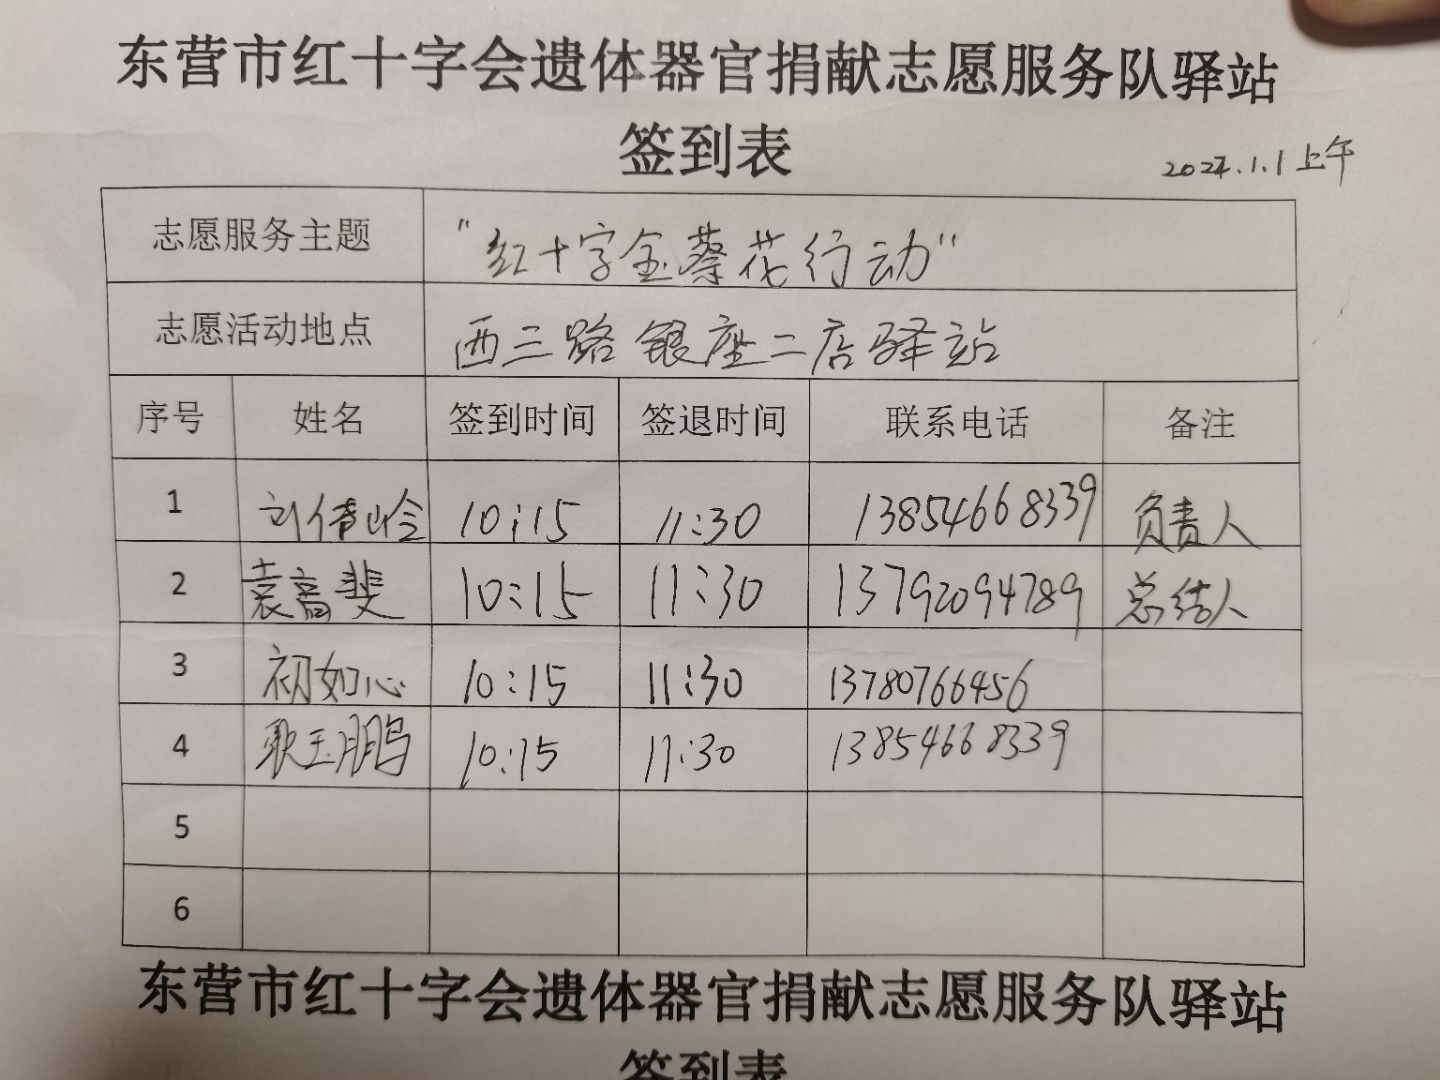 东营市红十字会遗体器官捐献志愿服务队驿站
签到表
2024.1.1上午
志愿服务主题 "红十字金葵花行动"
志愿活动地点 西三路银座二店驿站
序号 姓名 签到时间 签退时间 联系电话 备注
1 刘倩岭 10:15 11:30 13854668339 负责人
2 袁高斐 10:15 11:30 13792094789 总结人
3 初如心 10:15 11:30 13780766456
4 耿玉鹏 10:15 11:30 13854668339
5
6
东营市红十字会遗体器官捐献志愿服务队驿站
签到表